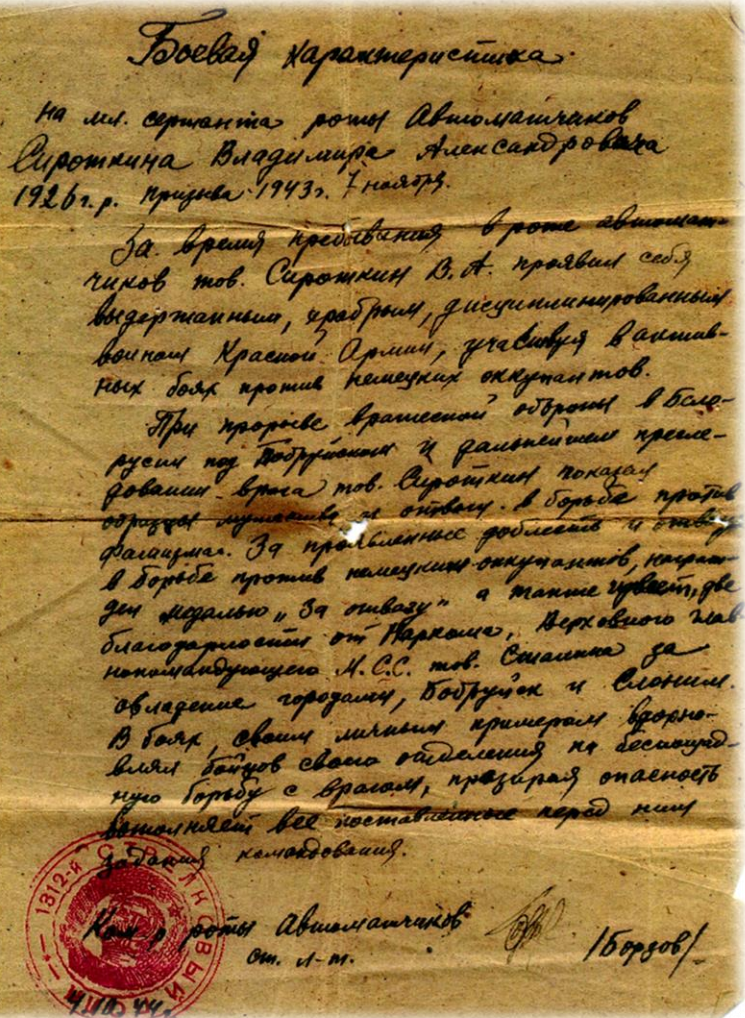 Боевая характеристика
на мл. сержанта роты Автоматчиков
Сироткина Владимира Александровича
1926 г. р. призыва 1943 г. 7 ноября.
За время пребывания в роте автомат-
чиков тов. Сироткин В. А. проявил себя
выдержанным, храбрым, дисциплинированным
воином Красной Армии, участвуя в актив-
ных боях против немецких оккупантов.
При прорыве вражеской обороны в Бело-
русии под Бобруйском и дальнейшем пресле-
довании врага тов. Сироткин показал
образцы мужества и отваги в борьбе против
фашизма. За проявленные доблесть и отвагу
в борьбе против немецких оккупантов, награж-
ден медалью „За отвагу" а также имеет, две
благодарности от Наркома, Верховного Глав-
нокомандующего М.С.С. тов. Сталина за
овладение городами, Бобруйск и Слоним.
В боях, своим личным примером вдохно-
влял бойцов своего отделения на беспощад-
ную борьбу с врагом, презирая опасность
выполняет все поставленные перед ним
задания командования.
Ком-р роты Автоматчиков
ст. л-т. /Борзов/
1312-й СТРЕЛКОВЫЙ
44 г.